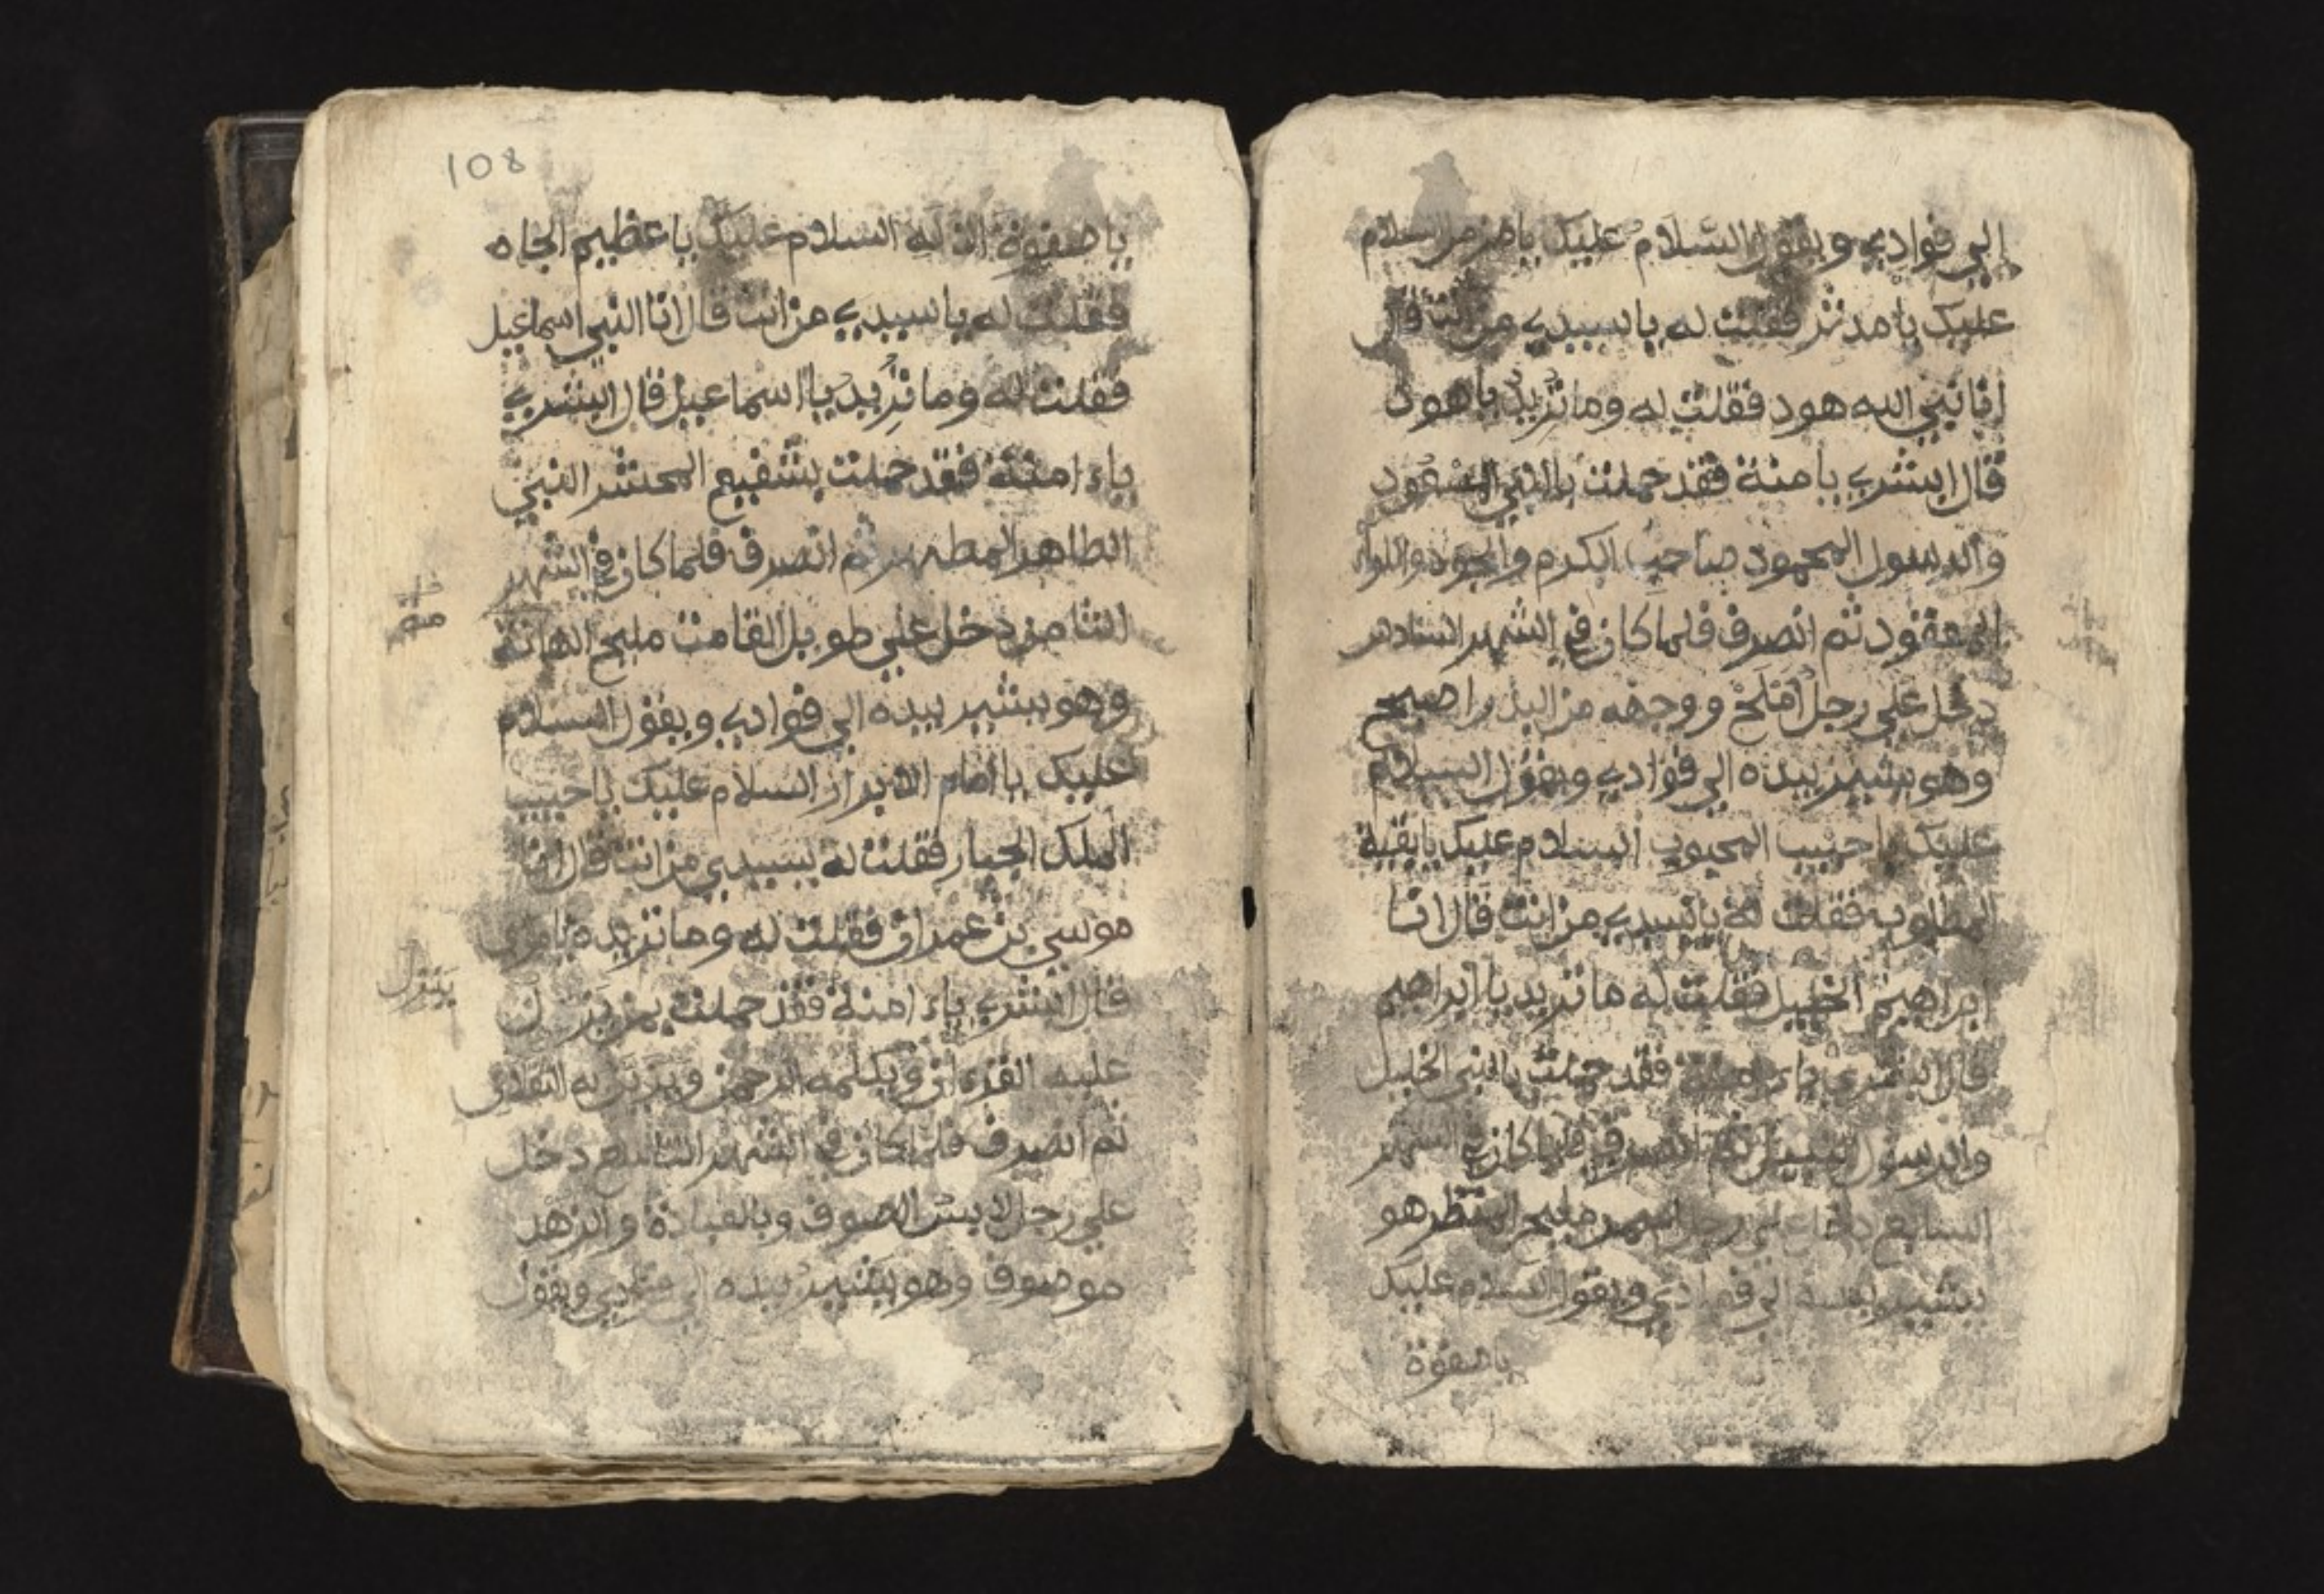 الي فوادي ويقول السلام عليك يامزمر السلام
عليك يا مدثر فقلت له ياسيدي من انت قال
انا نبي الله هود فقلت له وما تريد ياهود
قال ابشري يامنة فقد حملت بالنبي المسعود
والرسول المحمود صاحب الكرم والجود واللواء
المعقود ثم انصرف فلما كان في الشهر السادس
دخل علي رجل املح ووجهه من البدر اصبح
وهو يشير بيده الي فوادي ويقول السلام
عليك يا حبيب المحبوب السلام عليك يابقية
المطلوب فقلت له ياسيدي من انت قال انا
ابراهيم الخليل فقلت له ما تريد يا ابراهيم
قال ابشري ياء امنة فقد حملت بالنبي الخليل
والرسول ثم انصرف فلما كان في الشهر
السابع دخل علي رجل اسمر مليح المنظر هو
يشير بيده الي فوادي ويقول السلام عليك
ياصفوة
108
ياصفوة الاله السلام عليك يا عظيم الجاه
فقلت له ياسيدي من انت قال انا النبي اسماعيل
فقلت له وما تريد يا اسماعيل قال ابشري
ياء امنة فقد حملت بشفيع المحشر النبي
الطاهر المطهر ثم انصرف فلما كان في الشهر
الثامن دخل علي طويل القامت مليح الهامة
مة
وهو يشير بيده الي فوادي ويقول السلام
عليك يا امام الابرار السلام عليك يا حبيب
الملك الجبار فقلت له يسيدي من انت قال انا
موسي بن عمران فقلت له وما تريده ياموسى
قال ابشري ياء امنة فقد حملت بمن ينزل
ينزل
عليه القرءان ويكلمه الرحمن
ثم انصرف فلما كان في الشهر التاسع دخل
علي رجل لابس الصوف وبالعبادة والزهد
موصوف وهو يشير بيده الي ويقول